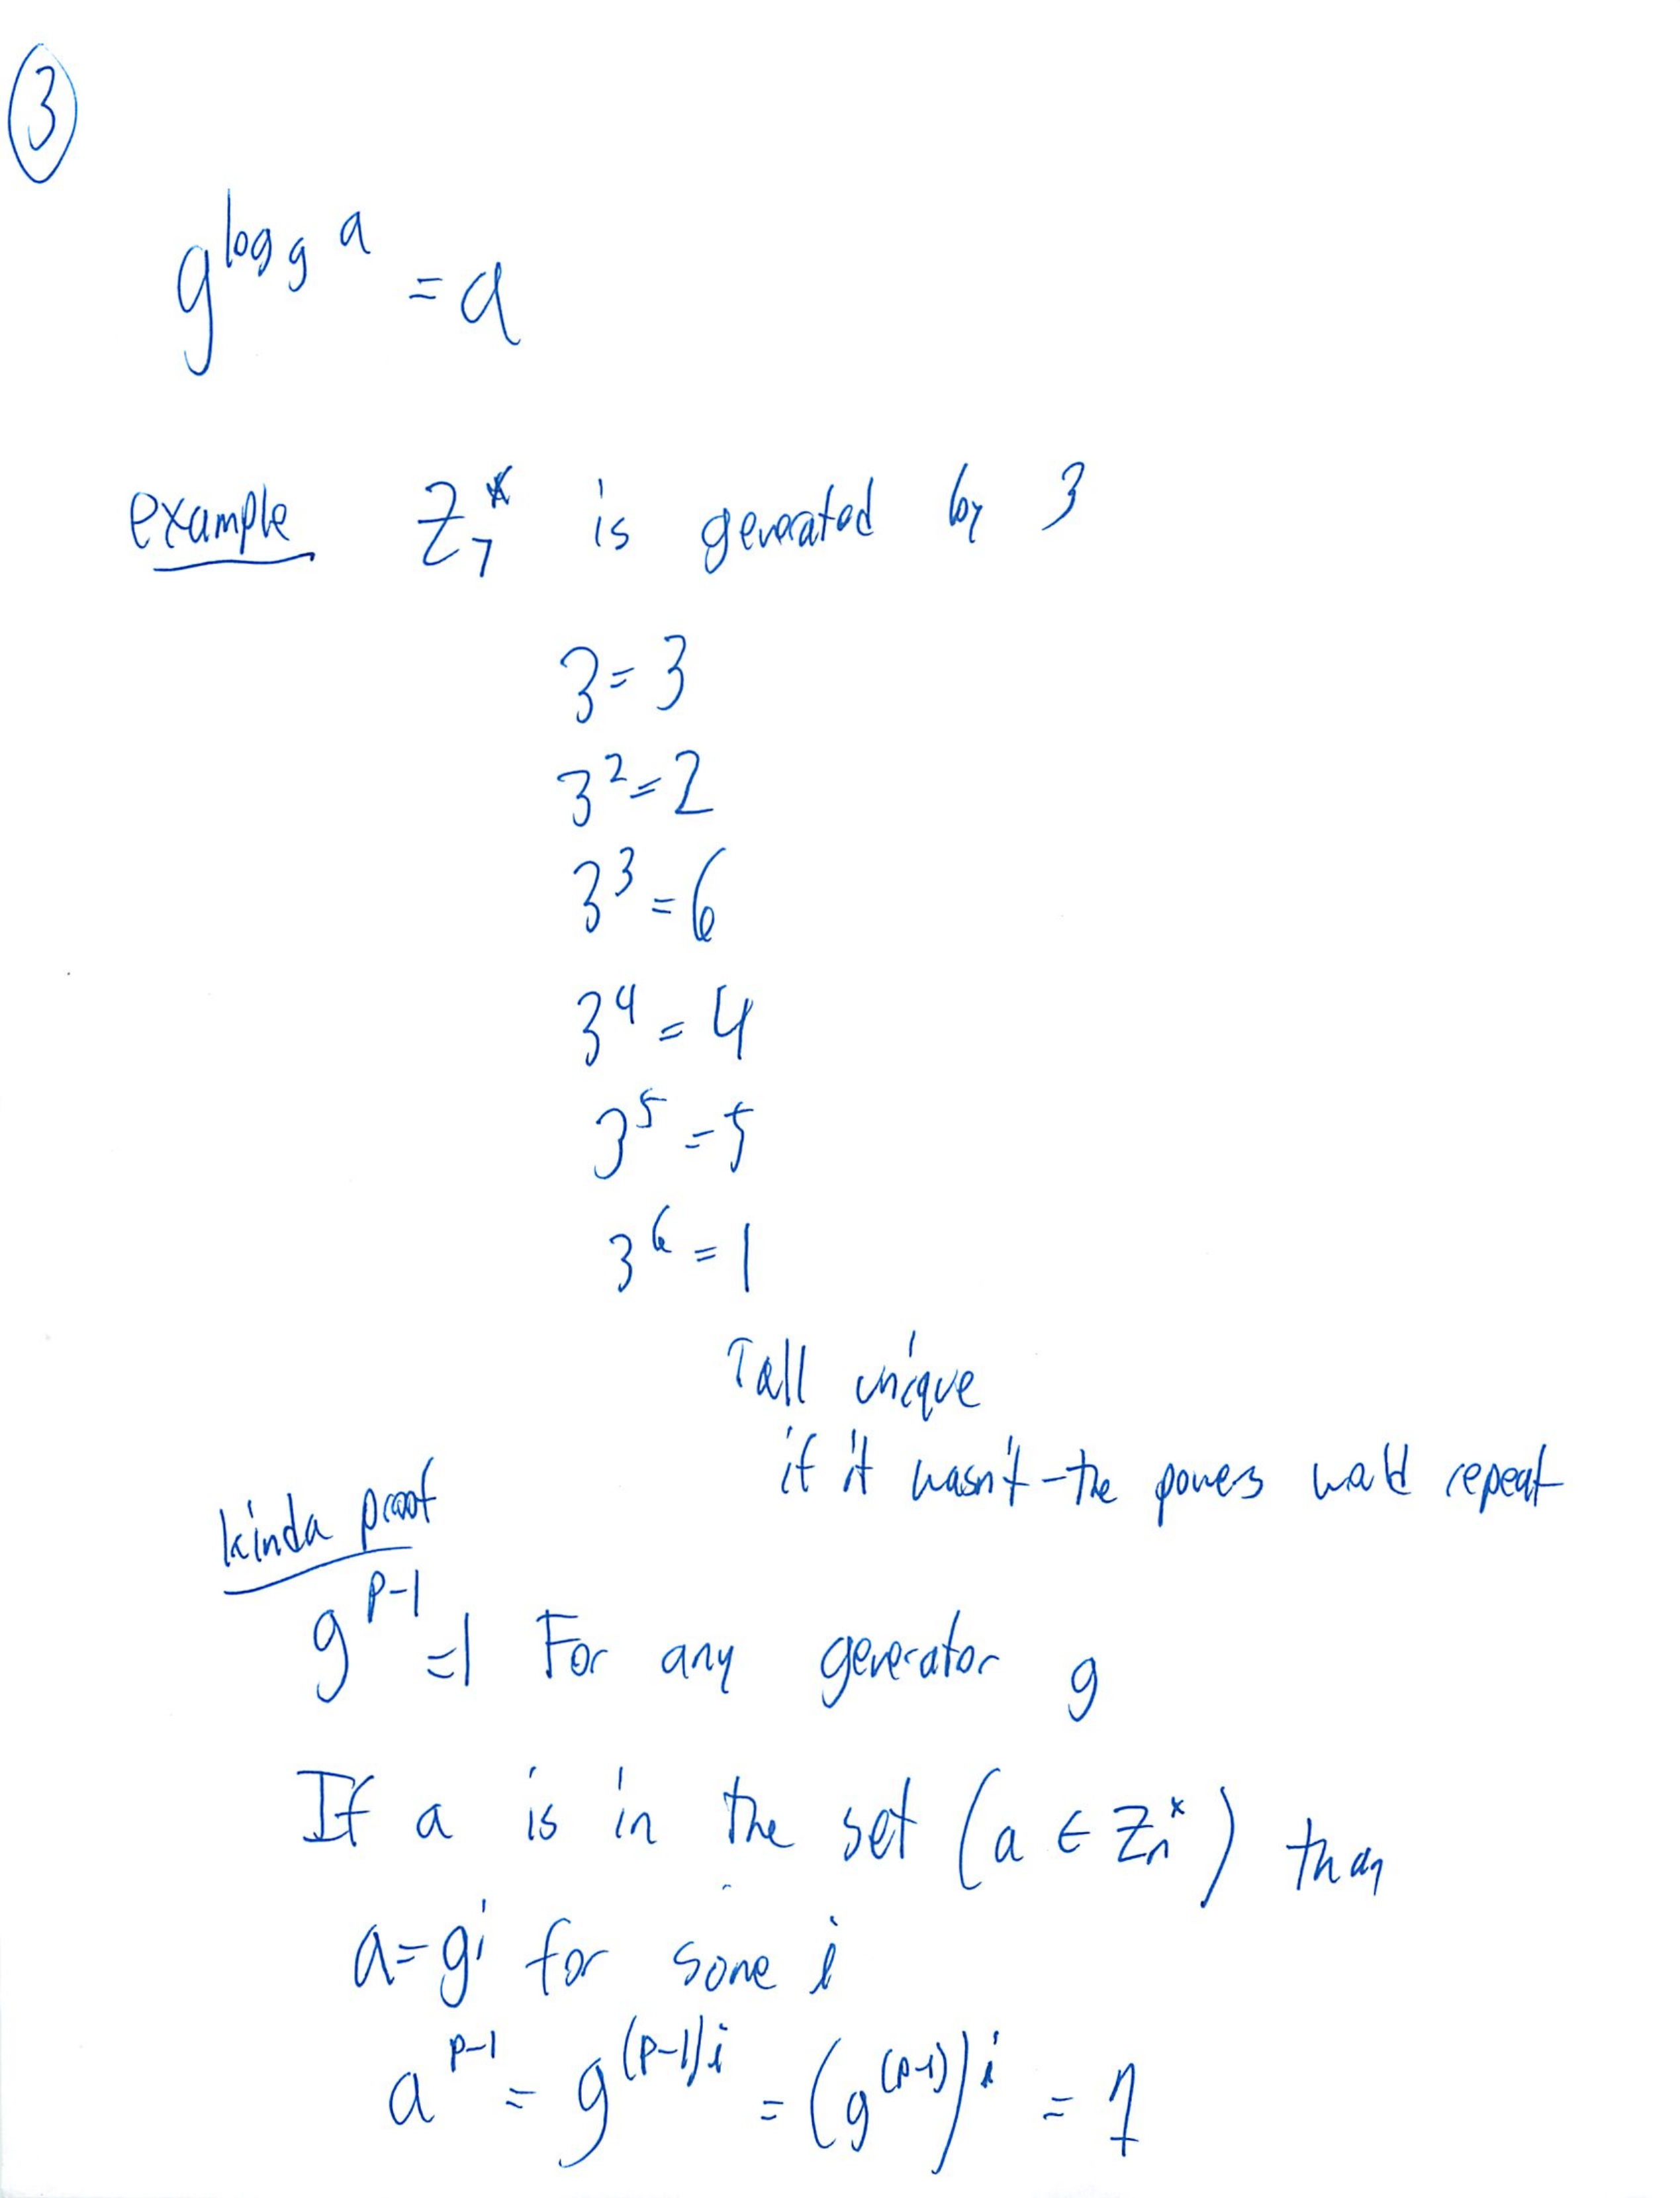 3
g^{log_g a} = a
example Z_7^* is generated by 3
3 = 3
3^2 = 2
3^3 = 6
3^4 = 4
3^5 = 5
3^6 = 1
↑ all unique
if it wasn't - the powers would repeat
kinda proof
g^{p-1} = 1 For any generator g
If a is in the set (a ∈ Z_n^*) than
a = g^i for some i
a^{p-1} = g^{(p-1)i} = (g^{(p-1)})^i = 1